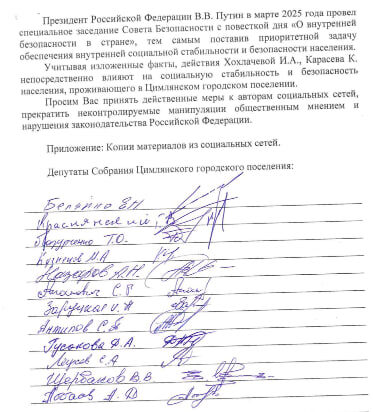 Президент Российской Федерации В.В. Путин в марте 2025 года провел
специальное заседание Совета Безопасности с повесткой дня «О внутренней
безопасности в стране», тем самым поставив приоритетной задачу
обеспечения внутренней социальной стабильности и безопасности населения.
Учитывая изложенные факты, действия Хохлачевой И.А., Карасева К.
непосредственно влияют на социальную стабильность и безопасность
населения, проживающего в Цимлянском городском поселении.
Просим Вас принять действенные меры к авторам социальных сетей,
прекратить неконтролируемые манипуляции общественным мнением и
нарушения законодательства Российской Федерации.
Приложение: Копии материалов из социальных сетей.
Депутаты Собрания Цимлянского городского поселения:
Т.О.
Кузнецов М.А.
Назаров А.Н.
С.Г.
Заруцкая И.Н.
Антипов С.В.
Гусакова Д.А.
С.А.
Щербаков В.В
Лобаов А.В